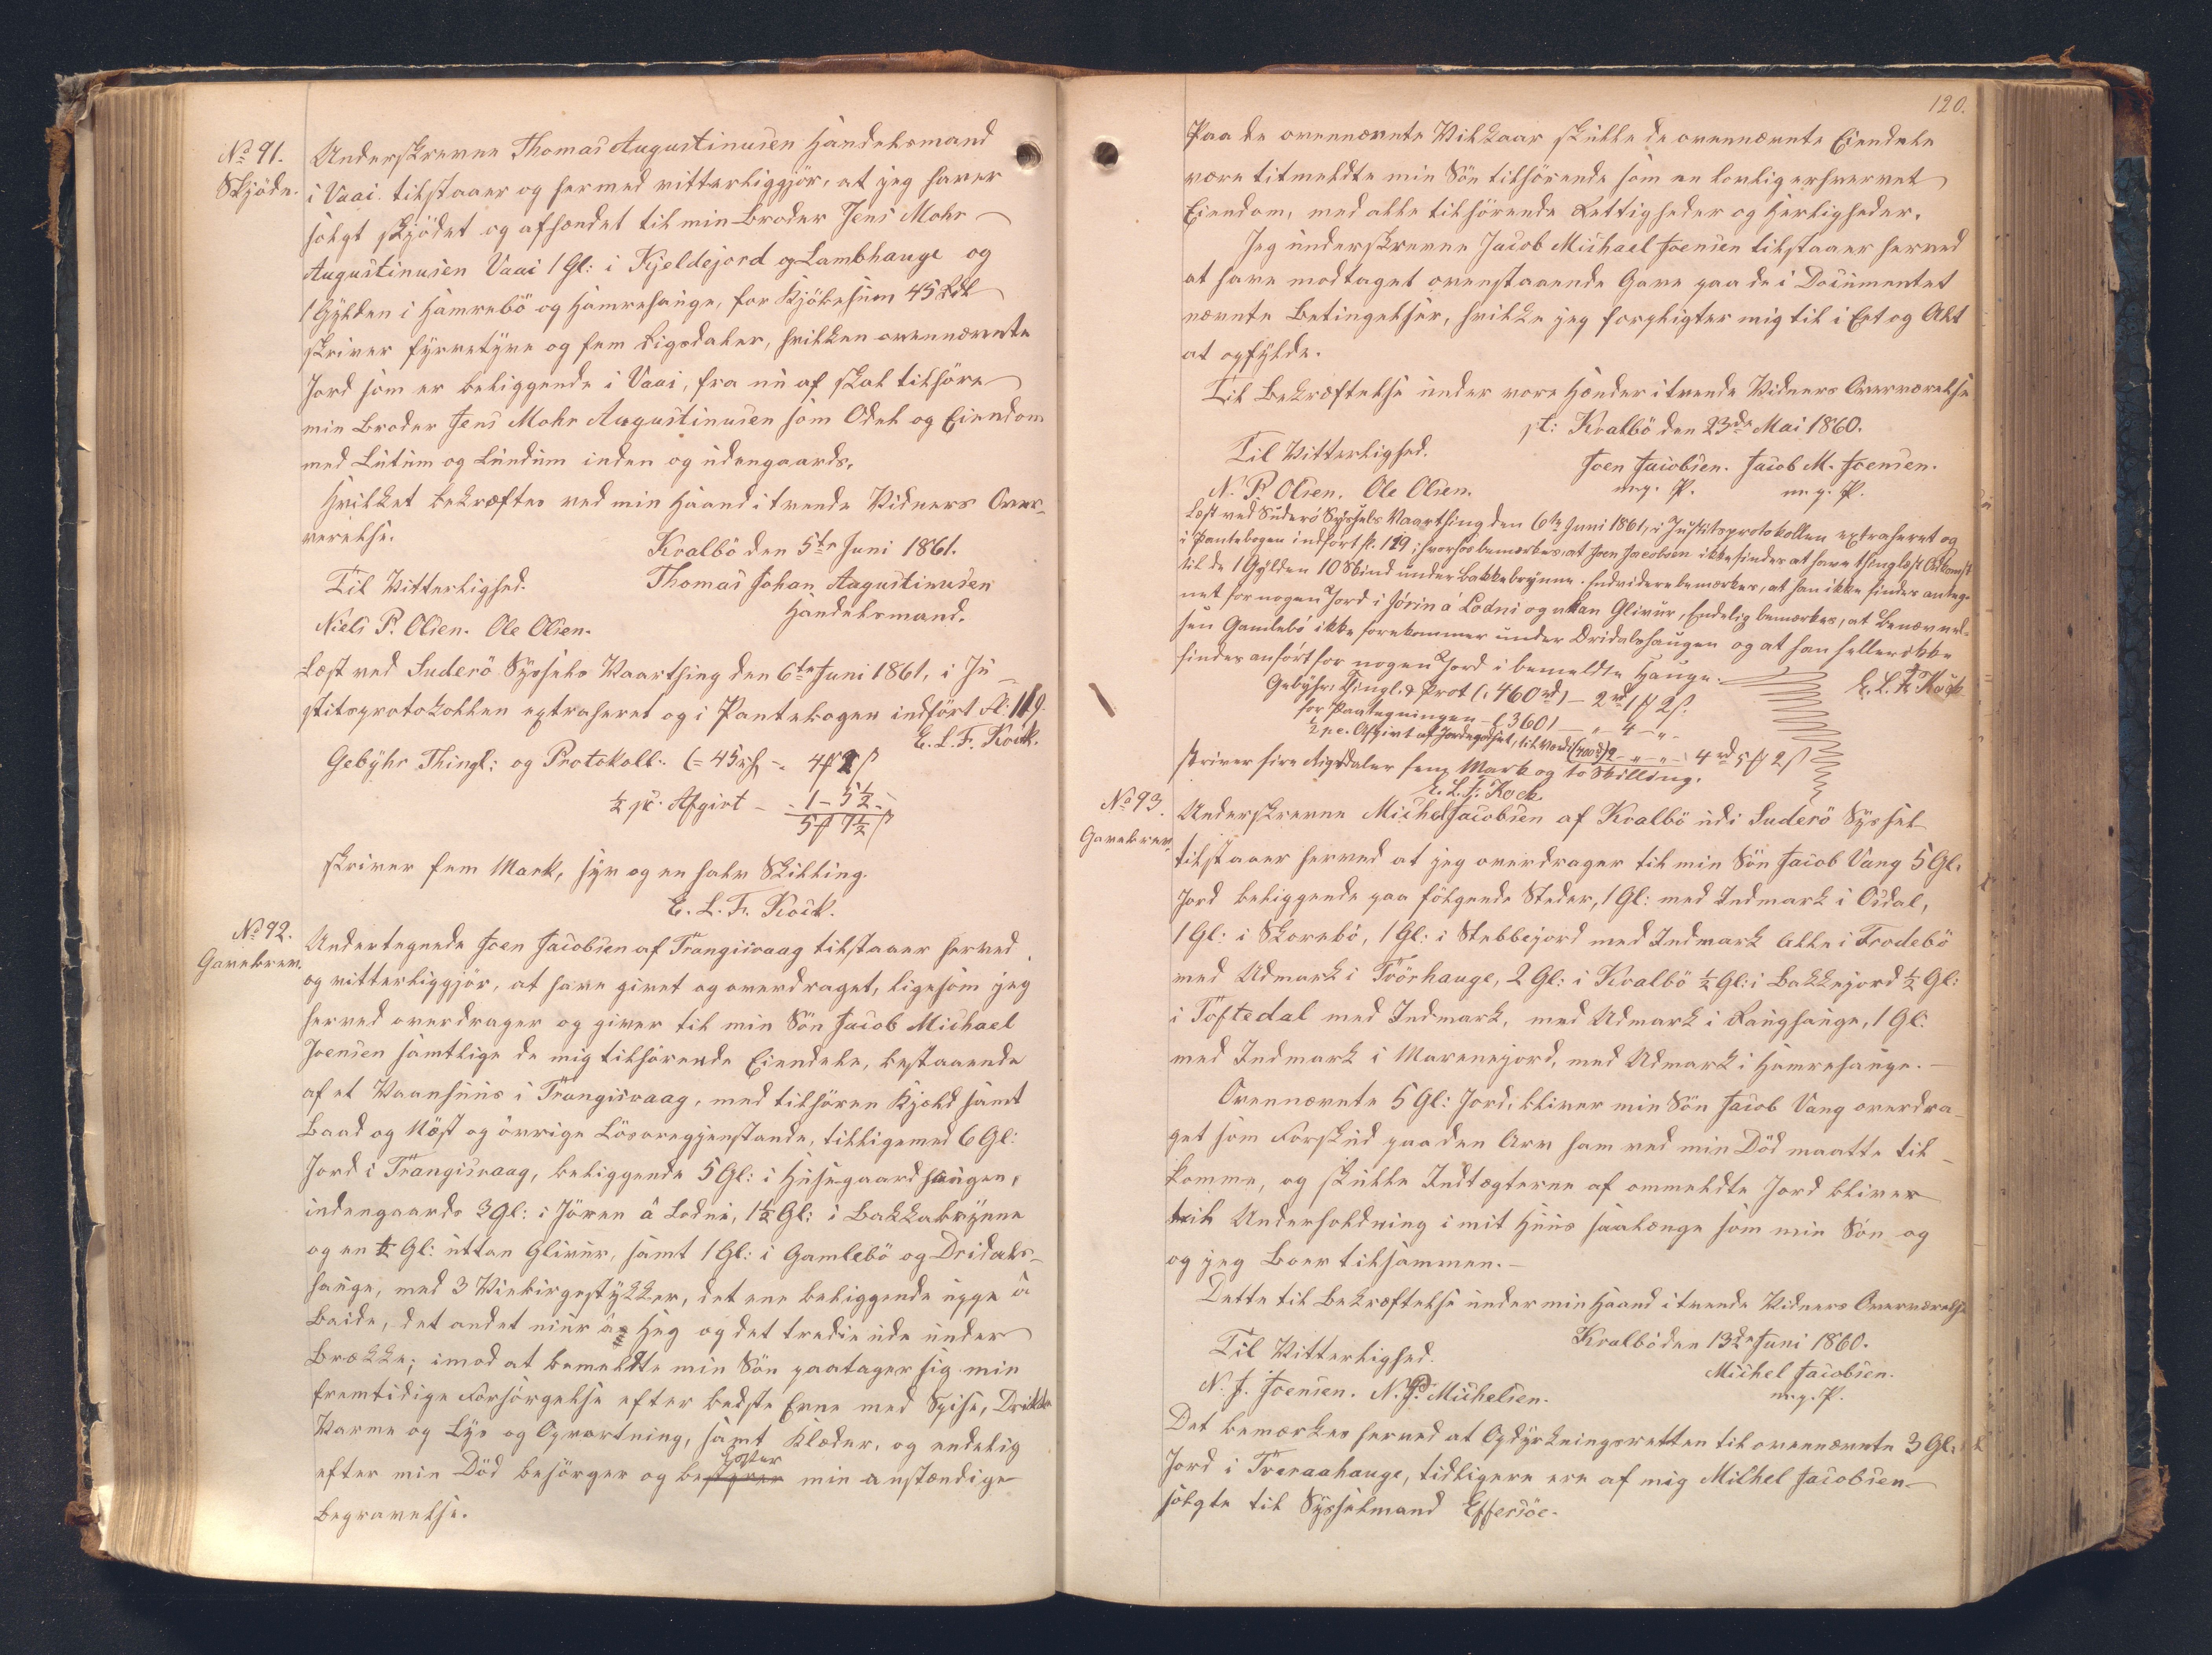 No 91.
Skjöde.
Underskrevne Thomas Augustinusen Handelsmand
i Vaai tilstaaer og hermed vitterliggjör, at jeg haver
solgt skjödet og afhændet til min Broder Jens Mohr
Augustinusen Vaai 1 Gl: i Kjeldejord og Lambhauge og
1 Gylden i Hamrebö og Hamrehauge, for Kjöbesum 45 Rdl
skriver fyrretyve og fem Rigsdaler, hvilken ovennævnte
Jord som er beliggende i Vaai, fra nu af skal tilhöre
min Broder Jens Mohr Augustinusen som Odel og Eiendom
med Lutum og Lundum inden og udengaards.
Hvilket bekræftes ved min Haand i tvende Vidners Over-
værelse.
Kvalbö den 5te Juni 1861.
Til Vitterlighed.
Thomas Johan Augustinusen
Niels P. Olsen. Ole Olsen.
Handelsmand.
Læst ved Suderö Syssels Vaarthing den 6te Juni 1861, i Ju-
stitsprotokollen extraheret og i Pantebogen indfört fl: 119.
E. L. F. Kock.
Gebyhr Thingl: og Protokoll: (= 45 rd) - 4 ꝳ 2 ß
½ pc. Afgivt - - 1 - 5½ -
5 ꝳ 7½ ß
skriver fem Mark, syv og en halv Skilling.
E. L. F. Kock.
No 92.
Gavebrev.
Undertegnede Joen Jacobsen af Trangisvaag tilstaaer herved
og vitterliggjör, at have givet og overdraget, ligesom jeg
herved overdrager og giver til min Sön Jacob Michael
Joensen samtlige de mig tilhörende Eiendele, bestaaende
af et Vaanhuus i Trangisvaag, med tilhören Kjæld samt
Baad og Nöst og övrige Lösöregjenstande, tilligemed 6 Gl:
Jord i Trangisvaag, beliggende 5 Gl: i Husegaardhaugen,
indengaards 3 Gl: i Jören â Lodni, 1½ Gl: i Bakkabrynne
og en ½ Gl: uttan Glivur, samt 1 Gl: i Gamlebö og Dridals-
hauge, med 3 Viekirgestykker, det ene beliggende uppe â
Beide, det andet niur â Heg og det tredie ude under
Brække; imod at bemeldte min Sön paatager sig min
fremtidige Forsörgelse efter bedste Evne med Spise, Drikke
Varme og Lys og Opvartning, samt Klæder, og endelig
efter min Död besörger og bekoster min anstændige
Begravelse.
120.
Paa de ovennævnte Vilkaar skulle de ovennævnte Eiendele
være titmeldte min Sön tilhörende som en lovlig erhvervet
Eiendom, med alle tilhörende Rettigheder og Herligheder.
Jeg underskrevne Jacob Michael Joensen tilstaaer herved
at have modtaget ovenstaaende Gave paa de i Documentet
nævnte Betingelser, hvilke jeg forpligter mig til i Eet og Alt
at opfylde.
Til Bekræftelse under vore Hænder i tvende Vidners Overværelse
pt: Kvalbö den 23de Mai 1860.
Til Vitterlighed.
Joen Jacobsen. Jacob M. Joensen.
N. P. Olsen. Ole Olsen.
m. p. P. m. p. P.
Læst ved Suderö Syssels Vaarthing den 6te Juni 1861, i Justitsprotokollen extraheret og
i Pantebogen indfört fl. 119; hvorhos bemærkes, at Joen Jacobsen ikke findes at have thinglæst Adkomst
til de 1 Gylden 10 Skind under Bakkebrynne. Endvidere bemærkes, at han ikke findes anteg-
net for nogen Jord i Jörin á Lodni og uttan Glivur, Endelig bemærkes, at Benævnel-
sen Gamlebö ikke forekommer under Dridalshaugen og at han heller ikke
findes anfört for nogen Jord i bemeldte Hauge.
E. L. F. Kock
Gebyhr, Thingl. & Prot (: 460 rd) - 2 rd 1 ꝳ 2 ß.
for Paategningen - (360) - " 4 - " -
½ pc. Afgivt af Jordegodset, til Værdi (400 rd) 2 - " - " - 4 rd 5 ꝳ 2 ß
skriver fire Rigsdaler fem Mark og to Skilling.
E. L. F. Kock
No 93.
Gavebrev.
Underskrevne Michel Jacobsen af Kvalbö udi Suderö Syssel
tilstaaer herved at jeg overdrager til min Sön Jacob Vang 5 Gl.
Jord beliggende paa fölgende Steder, 1 Gl: med Indmark i Osdal,
1 Gl: i Skorebö, 1 Gl: i Stebbejord med Indmark Alle i Trodebö
med Udmark i Tvörhauge, 2 Gl: i Kvalbö ½ Gl: i Bakkejord ½ Gl:
i Töftedal med Indmark, med Udmark i Raughauge, 1 Gl:
med Indmark i Marenejord, med Udmark i Hamrehauge. -
Ovennævnte 5 Gl: Jord, bliver min Sön Jacob Vang overdra-
get som Forskud paa den Arv ham ved min Död maatte til-
komme, og skulle Indtægterne af ommeldte Jord bliver
til Underholdning i mit Huus saalænge som min Sön og
og jeg Boer tilsammen. -
Dette til Bekræftelse under min Haand i tvende Vidners Overværelse
Kvalbö den 13de Juni 1860.
Til Vitterlighed.
Michel Jacobsen.
N. J. Joensen. N. P. Michelsen.
m. p. P.
Det bemærkes herved at Opdyrkningsretten til ovennævnte 3 Gl:
Jord i Tveraahauge, tidligere ere af mig Michel Jacobsen
solgte til Sysselmand Effersöe.